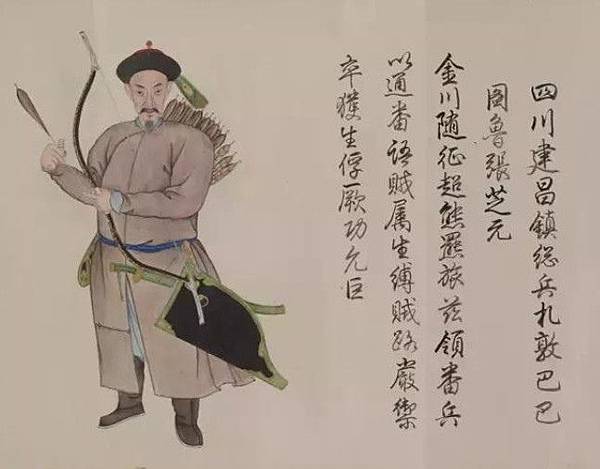 四川建昌鎮総兵札敦巴巴
圖魯張芝元
金川隨征超熊羆旅茲領番兵
以通番語賊属生縛賊路嚴禦
卒獲生俘厥功允巨